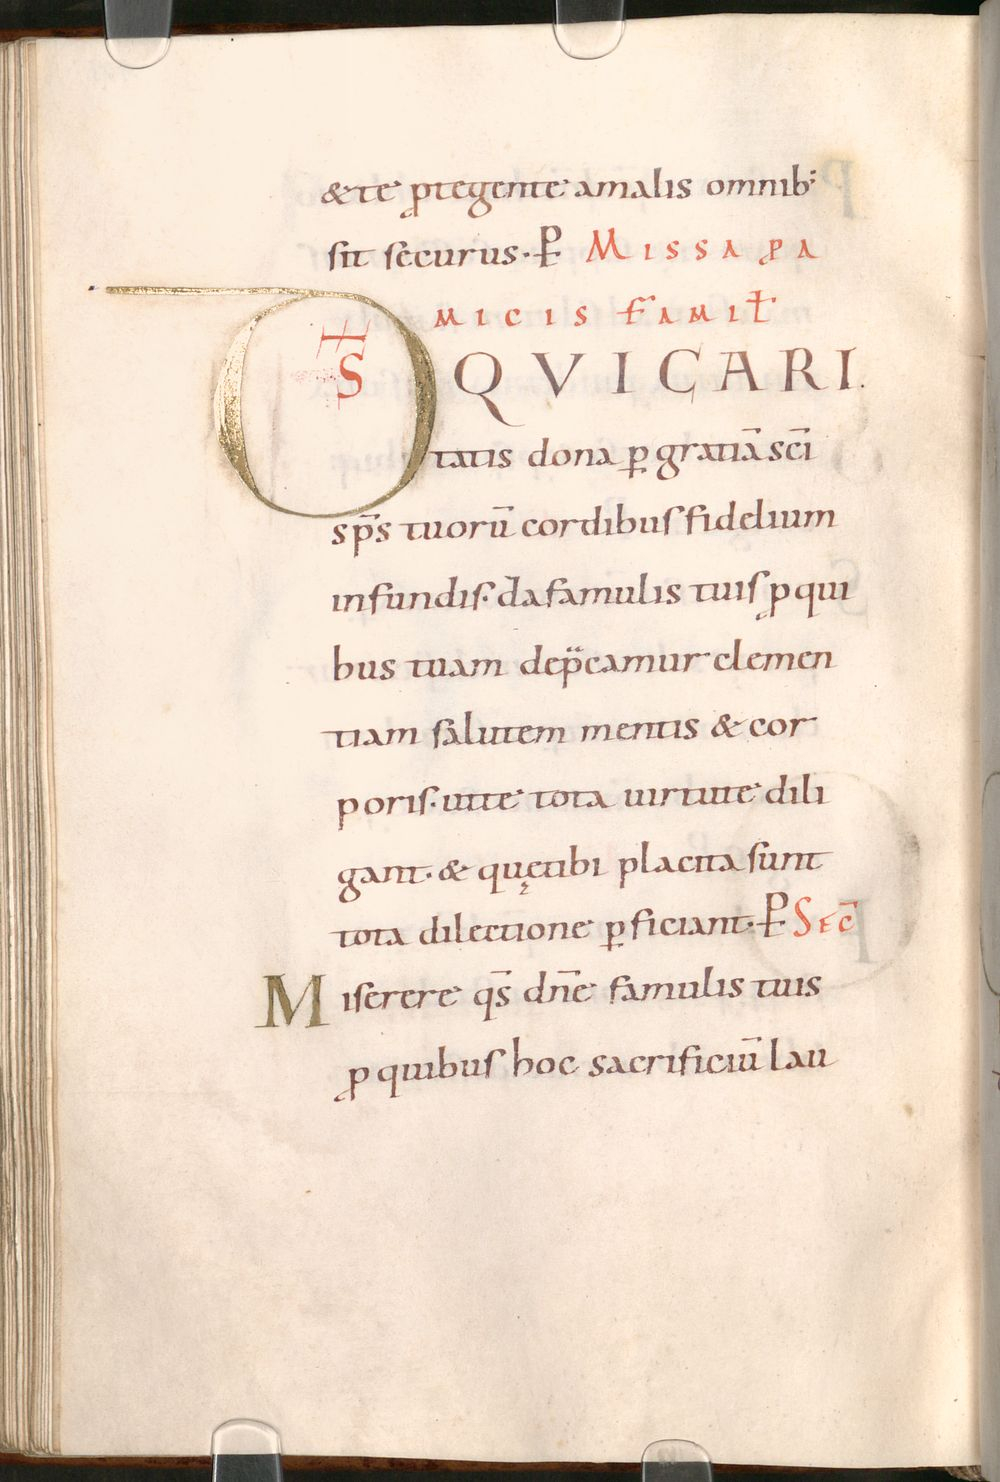 &te ꝓtegente amalis omnib;
sit securus. P̵ MISSA ꝓ A
MICIS FAMIŁ
D̅S QVI CARI
tatis dona ꝑ gratiā sc̄i
sp̄s tuorū cordibus fidelium
infundis. da famulis tuis ꝓ qui
bus tuam dep̄camur clemen
tiam salutem mentis & cor
poris. ut te tota uirtute dili
gant. & quę tibi placita sunt
tota dilectione ꝑficiant. P̵ SEC̄
Miserere qs̄ dn̄e famulis tuis
ꝓ quibus hoc sacrificiū lau